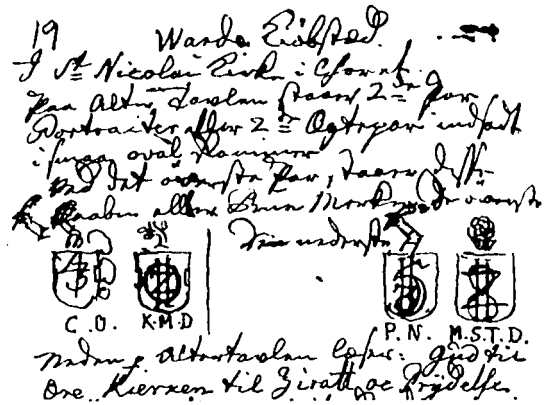 19 Warde Kiöbstæd.
I St Nicolai Kirke i Choret
paa Alter Tavlen staaer 2de Par
Portraiter eller 2de Ægtepar indsadt
i smaa oval Rammer
ved det øverste Par, staaer disse
Vaaben eller Bue Merker, de øverste
den nederste
C.O. K.M.D P.N. M.S.T.D.
neden Altertavlen læses: Gud til
Ære Kierken til Ziratt oc Prydelse